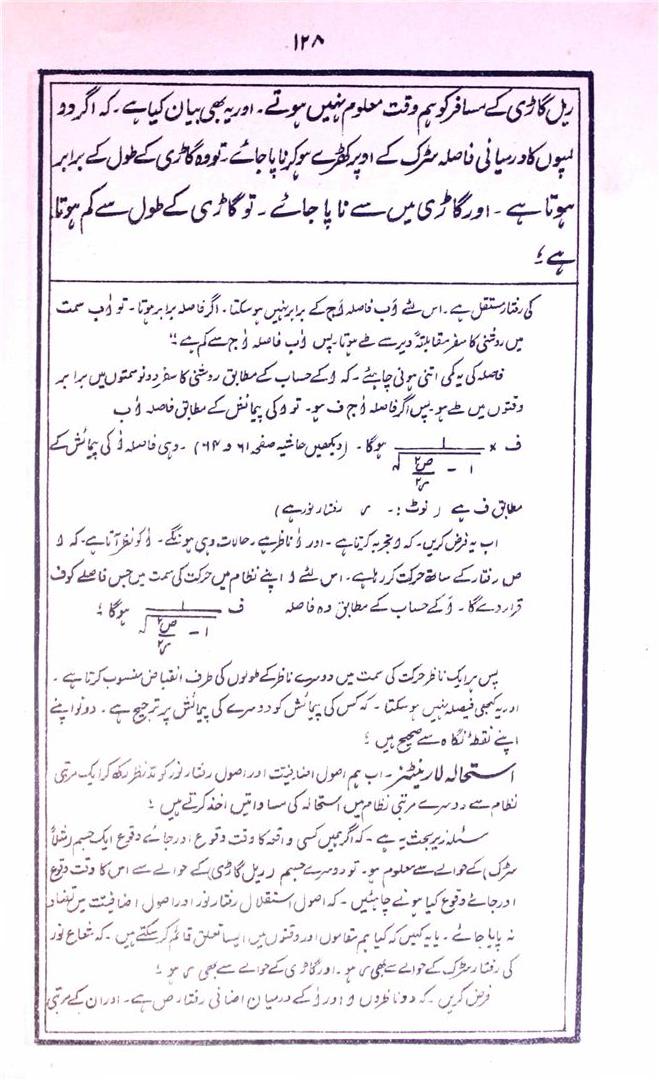 ۱۲۸
ریل گاڑی کے مسافر کو ہم وقت معلوم نہیں ہوتے۔ اور یہ بھی بیان کیا ہے۔ کہ اگر دو
لمپوں کا درمیانی فاصلہ سڑک کے اوپر کھڑے ہو کر ناپا جائے۔ تو وہ گاڑی کے طول کے برابر
ہوتا ہے۔ اور گاڑی میں سے ناپا جائے۔ تو گاڑی کے طول سے کم ہوتا
ہے ؛
کی رفتار مستقل ہے۔ اس لئے أب فاصلہ أج کے برابر نہیں ہو سکتا۔ اگر فاصلہ برابر ہوتا۔ تو أب سمت
میں روشنی کا سفر مقابلتہً دیر سے طے ہوتا۔ پس أب فاصلہ أج سے کم ہے ؛
فاصلہ کی یہ کمی اتنی ہونی چاہئے۔ کہ أ کے حساب کے مطابق روشنی کا سفر دونو سمتوں میں برابر
وقتوں میں طے ہو۔ پس اگر فاصلہ أج ف ہو۔ تو أ کی پیمائش کے مطابق فاصلہ أب
ف × ۱ / √(۱ − ص۲/س۲) ہوگا۔ (دیکھیں حاشیہ صفحہ ۶۱ و ۶۴)۔ وہی فاصلہ أ کی پیمائش کے
مطابق ف ہے (نوٹ :۔ س رفتار نور ہے)
اب یہ فرض کریں۔ کہ لا تجربہ کرتا ہے۔ اور أ ناظر ہے۔ حالات وہی ہونگے۔ أ کو نظر آتا ہے۔ کہ لا
ص رفتار کے ساتھ حرکت کر رہا ہے۔ اس لئے لا اپنے نظام میں حرکت کی سمت میں جس فاصلے کو ف
قرار دے گا۔ أ کے حساب کے مطابق وہ فاصلہ ف ۱ / √(۱ − ص۲/س۲) ہوگا ؛
پس ہر ایک ناظر حرکت کی سمت میں دوسرے ناظر کے طولوں کی طرف انقباض منسوب کرتا ہے۔
اور یہ کبھی فیصلہ نہیں ہو سکتا۔ کہ کس کی پیمائش کو دوسرے کی پیمائش پر ترجیح ہے۔ دونو اپنے
اپنے نقطۂ نگاہ سے صحیح ہیں ؛
استحالہ لارینٹز۔ اب ہم اصول اضافیت اور اصول رفتار نور کو مدنظر رکھ کر ایک مرتبی
نظام سے دوسرے مرتبی نظام میں استحالہ کی مساواتیں اخذ کرتے ہیں ؛
مسئلہ زیر بحث یہ ہے۔ کہ اگر ہمیں کسی واقعہ کا وقت وقوع اور جائے وقوع ایک جسم (مثلاً
سڑک) کے حوالے سے معلوم ہو۔ تو دوسرے جسم (ریل گاڑی) کے حوالے سے اس کا وقت وقوع
اور جائے وقوع کیا ہونے چاہئیں۔ کہ اصول استقلال رفتار نور اور اصول اضافیت میں تضاد
نہ پایا جائے۔ یا یہ کہیں کہ کیا ہم مقاموں اور وقتوں میں ایسا تعلق قائم کر سکتے ہیں۔ کہ شعاع نور
کی رفتار سڑک کے حوالے سے بھی س ہو۔ اور گاڑی کے حوالے سے بھی س ہو ؛
فرض کریں۔ کہ دو ناظروں لا اور أ کے درمیان اضافی رفتار ص ہے۔ اور ان کے مرتبی